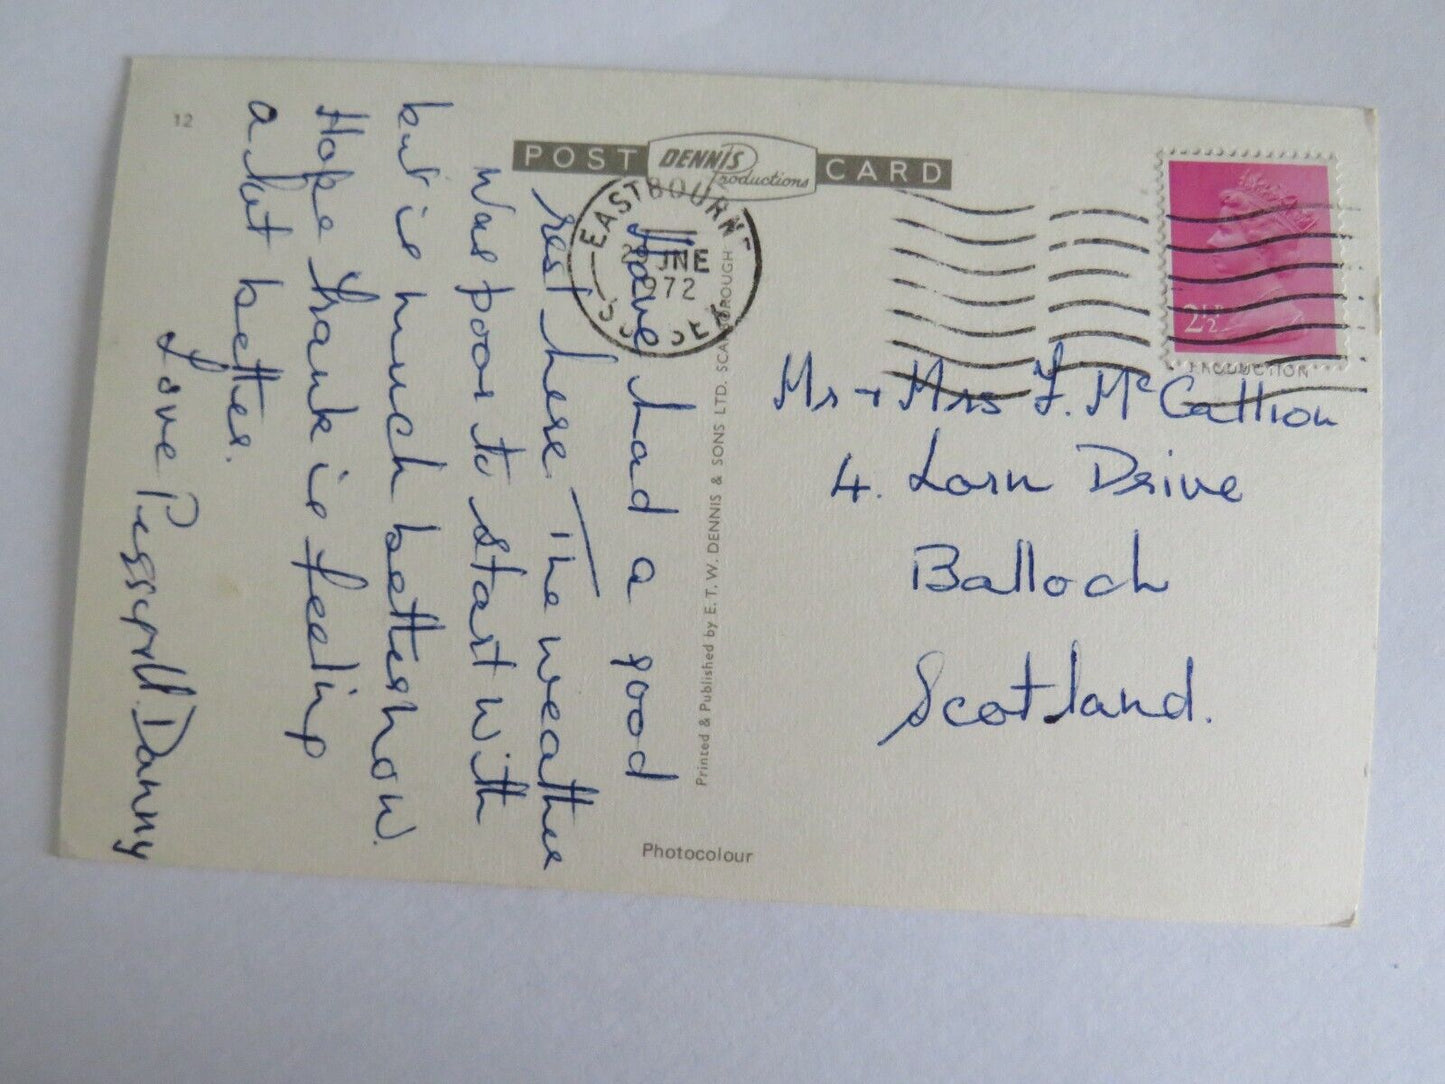 12
POST DENNIS Productions CARD
EASTBOURNE
JUNE
1972
SUSSEX
2½P
PRODUCTION
Have had a good
rest here. The weather
was poor to start with
but is much better now.
Hope Frank is feeling
a bit better.
Love Peggy Danny
Mr + Mrs F. McCallion
4. Lorn Drive
Balloch
Scotland.
Printed & Published by E. T. W. DENNIS & SONS LTD. SCARBOROUGH
Photocolour